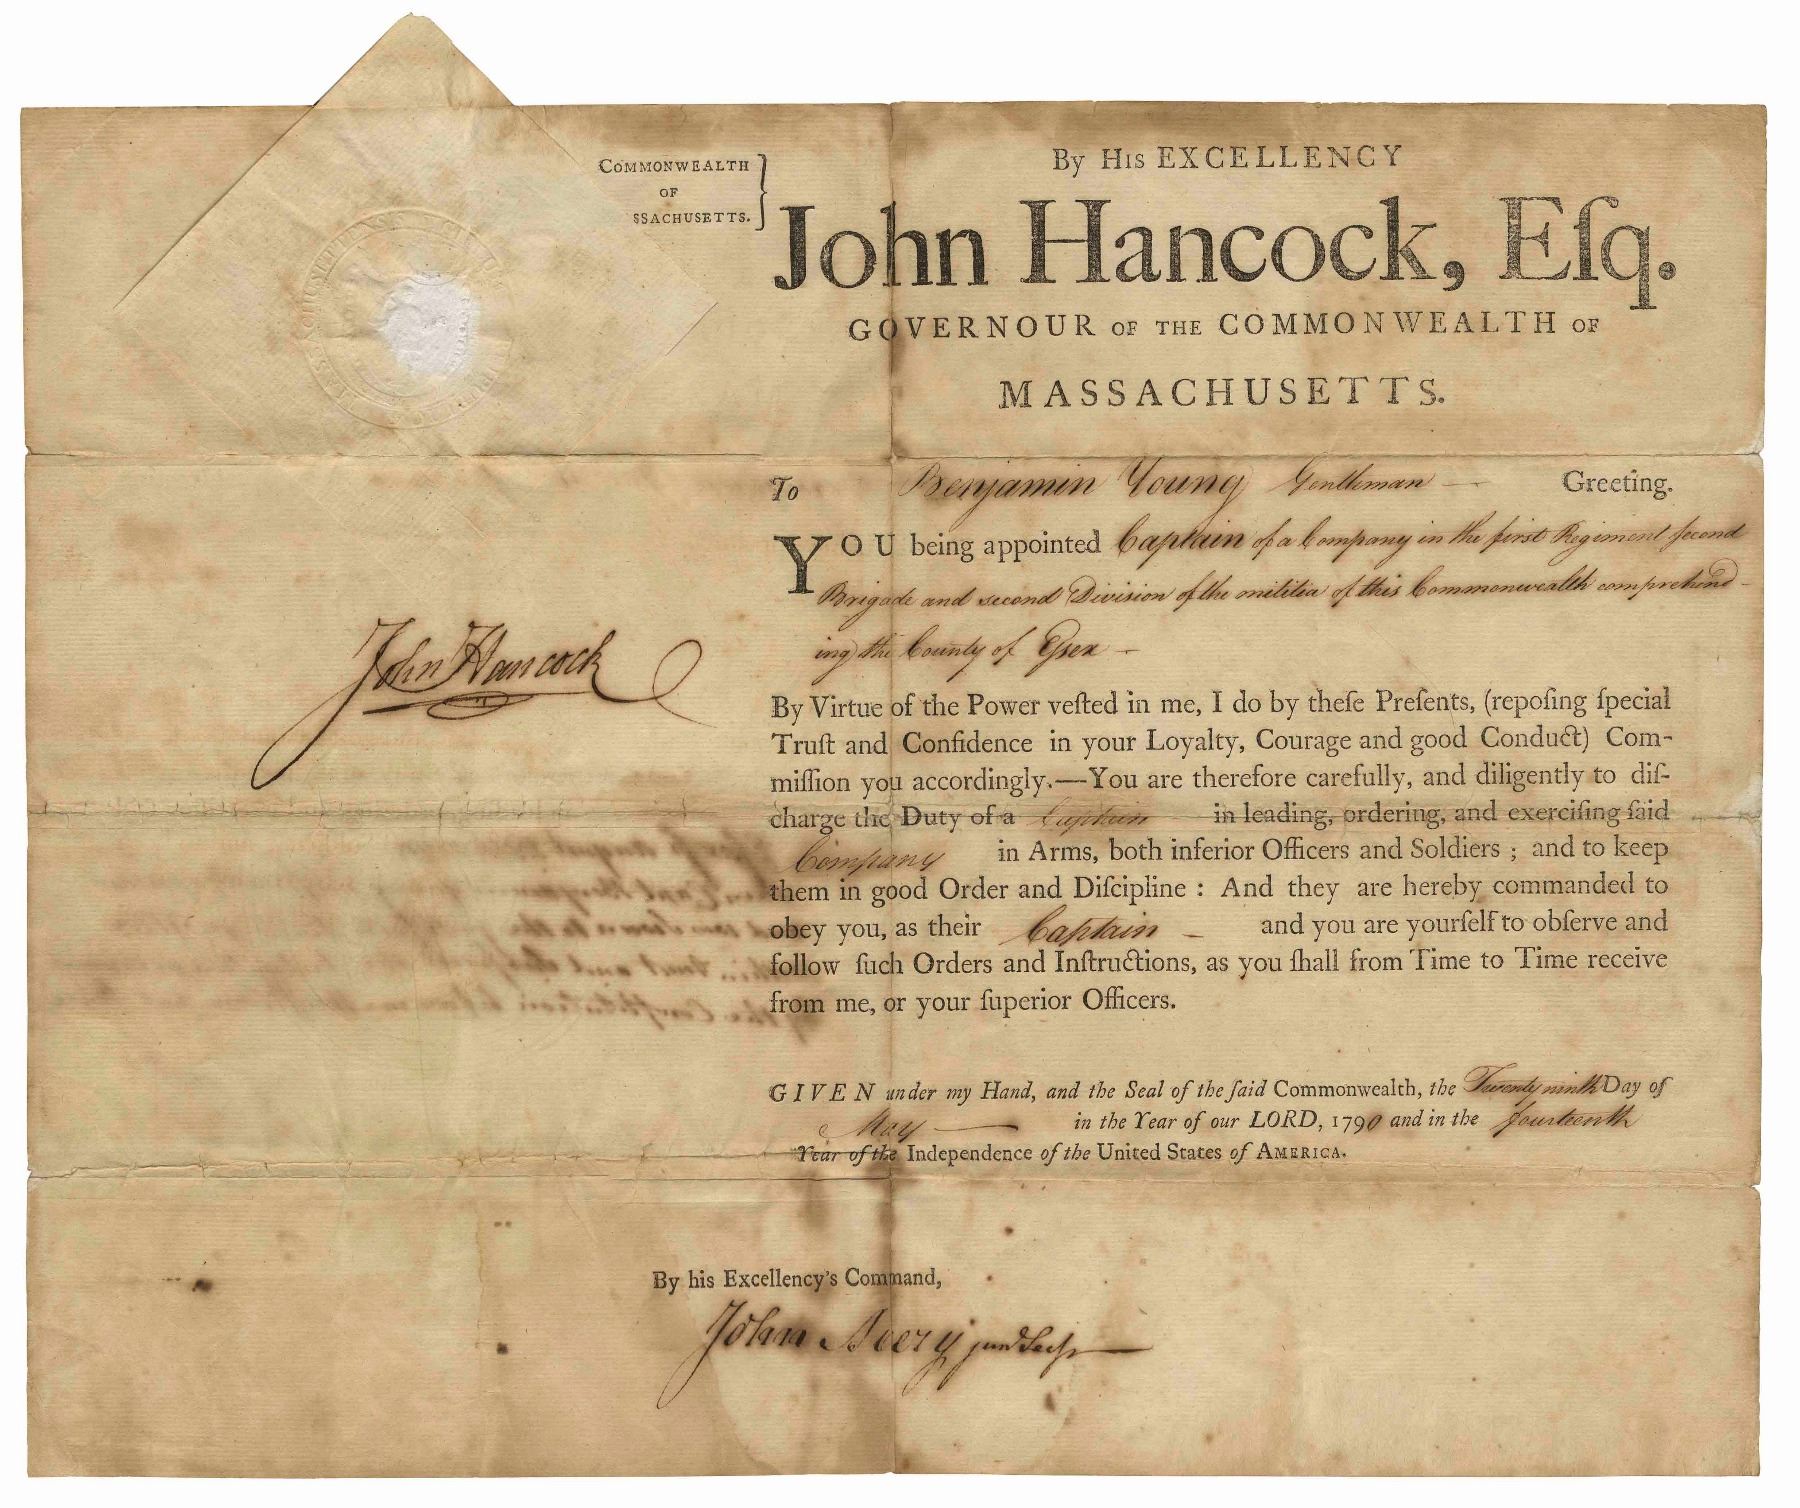 COMMONWEALTH
OF
SSACHUSETTS.
By His EXCELLENCY
John Hancock, Eſq.
GOVERNOUR OF THE COMMONWEALTH OF
MASSACHUSETTS.
To Benjamin Young Gentleman — Greeting.
YOU being appointed Captain of a Company in the first Regiment second
Brigade and second Division of the militia of this Commonwealth comprehend-
ing the County of Essex —
John Hancock
By Virtue of the Power veſted in me, I do by theſe Preſents, (repoſing ſpecial
Truſt and Confidence in your Loyalty, Courage and good Conduct) Com-
miſſion you accordingly.—You are therefore carefully, and diligently to diſ-
charge the Duty of a Captain in leading, ordering, and exerciſing ſaid
Company in Arms, both inferior Officers and Soldiers ; and to keep
them in good Order and Diſcipline : And they are hereby commanded to
obey you, as their Captain — and you are yourſelf to obſerve and
follow ſuch Orders and Inſtructions, as you ſhall from Time to Time receive
from me, or your ſuperior Officers.
GIVEN under my Hand, and the Seal of the ſaid Commonwealth, the Twenty ninth Day of
May — in the Year of our LORD, 1790 and in the fourteenth
Year of the Independence of the United States of AMERICA.
By his Excellency's Command,
John Avery junr Secry